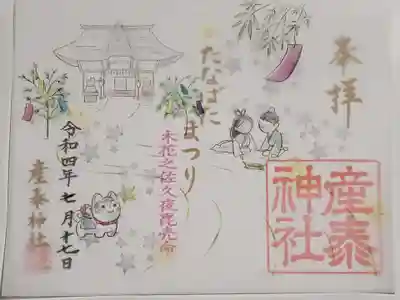 奉拝
たなばた
まつり
木花之佐久夜毘売命
令和四年七月十七日
産泰神社
産泰
神社